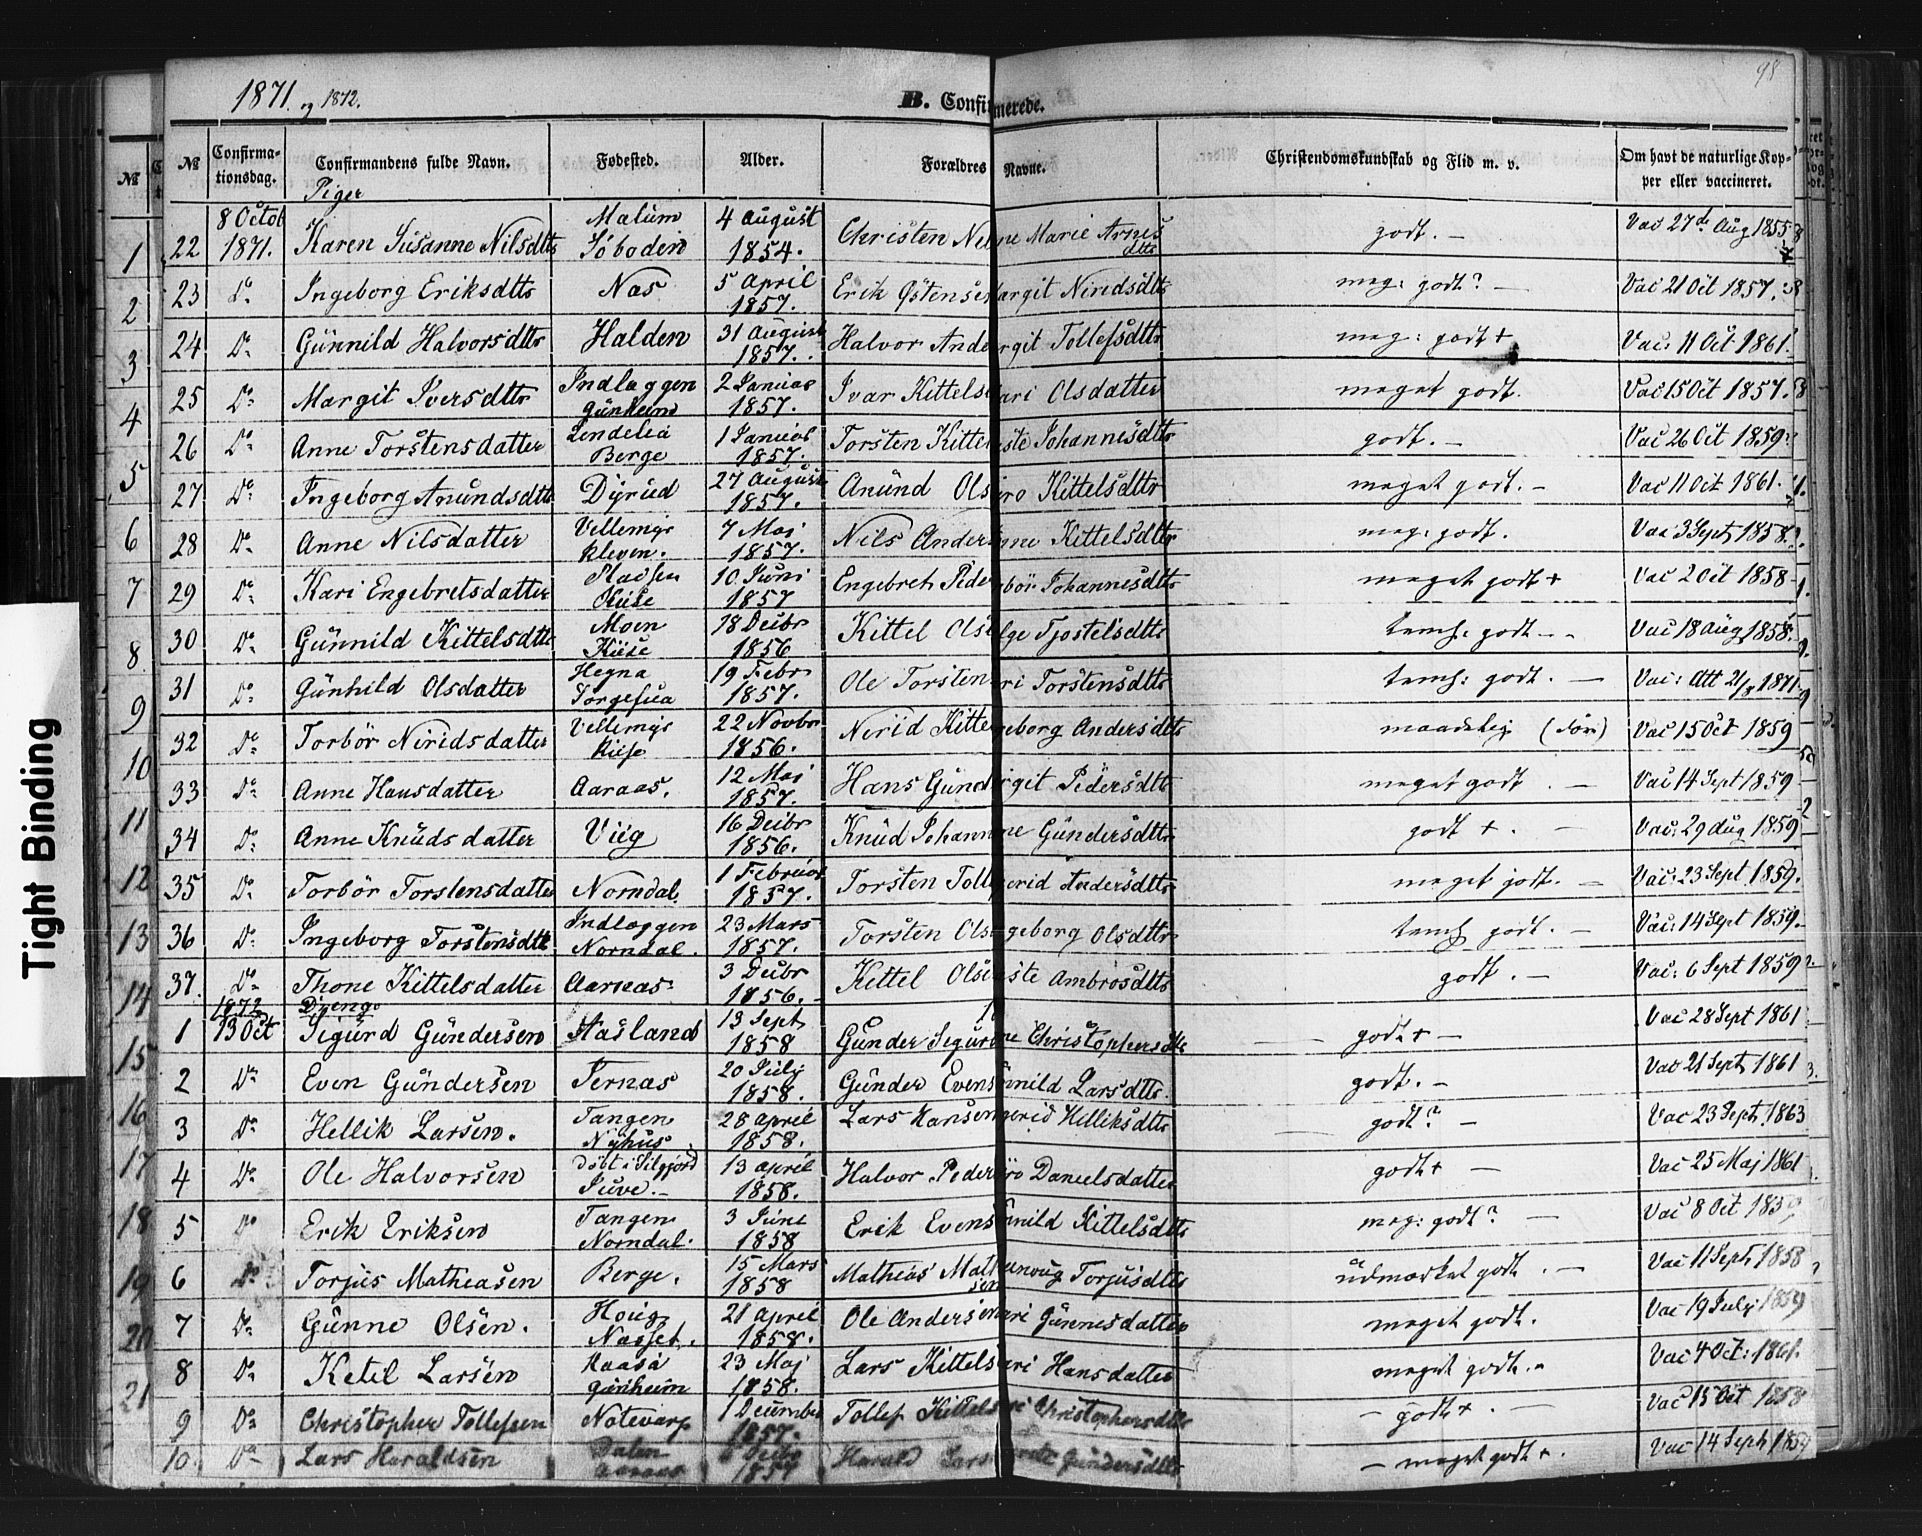 98
1871. og 1872.
B. Confirmerede.
№ Confirmationsdag. Confirmandens fulde Navn. Fødested. Alder. Forældres Navne. Christendomskundskab og Flid m. v. Om havt de naturlige Kopper eller vaccineret.
Piger
22 8 Octob 1871. Karen Susanne Nilsdttr 4 August 1854. Christen Marie Arnesdttr godt. — Vac 27de Aug 1855
23 do Ingeborg Eriksdttr Nas 5 April 1857. Erik Østense argit Niridsdttr meg: godt? — Vac 21 Oct 1857.
24 Do Günnild Halvorsdttr Halden 31 August 1857. Halvor Ande rgit Tollefsdttr meg: godt + Vac: 11 Oct 1861.
25 Do Margit Iversdttr Indlæggen Günheim 2 Januar 1857. Ivar Kittels ari Olsdatter meget godt. Vac 15 Oct 1857.
26 Do Anne Torstensdatter Berge 1 Januar 1857. Torsten Kittel ste Johannesdttr godt. — Vac 26 Oct 1859
27 Do Ingeborg Anundsdttr Dyrud 27 August 1857. Anünd Ols ro Kittelsdttr meget godt. — Vac 11 Oct 1861.
28 Do Anne Nilsdatter Kleven. 7 Maj 1857. Nils Anders ne Kittelsdttr meg: godt. Vac 3 Sept 1858.
29 Do Kari Engebretsdatter Pladsen 10 Juni 1857 Engebret Peder bør Johannesdttr meget godt + Vac 2 Oct 1858
30 Do Günnild Kittelsdttr Moen 18 Decbr 1856 Kittel Ols lge Tjostelsdttr temh: godt — Vac 18 Aug 1858.
31 Do Günhild Olsdatter Hegna 19 Febr 1857. Ole Torsten ri Torstensdttr temh: godt. — Vac: Att 21/8 1871
32 Do Torbør Niridsdatter 22 Novbr 1856. Neriid Kitte geborg Andersdttr maadelig Vac 15 Oct 1859
33 Do Anne Hansdatter Aaraas. 12 Maj 1857. Hans Günd rgit Pedersdttr meget godt. — Vac 14 Sept 1859
34 Do Anne Knüdsdatter Viig 16 Decbr 1856. Knüd Johann ne Gündersdttr godt +. — Vac: 29 Aug 1859
35 Do Torbør Torstensdatter Norndal 1 Februar 1857. Torsten Toll gerid Andersdttr meget godt. — Vac: 23 Sept 1859.
36 Do Ingeborg Torstensdttr Indlæggen Norndal. 23 Mars 1857. Torsten Ols ngeborg Olsdttr temh godt. — Vac: 14 Sept 1859.
37. Do Thone Kittelsdatter Aaraas 3 Decbr 1856. Kittel Ols ste Ambrosdttr godt. — Vac: 6 Sept 1859
1872 Drenge
1 13 Oct Sigürd Gündersen Hasland 13 Sept 1858 Günder Sigur ne Christophersdttr — godt + — Vac 28 Sept 1861
2 Do Even Gündersen Ternas 20 July 1858. Günder Evens nnild Larsdttr. godt. — Vac 21 Sept 1861
3 Do Hellik Larsen. Tangen Nyhus 28 April 1858. Lars Hansen gerid Helliksdttr godt? — Vac 23 Sept 1863
4 Do Ole Halvorsen døbt i Silgjord Juve. 13 April 1858. Halvor Peder ro Danielsdatter godt + — Vac 25 Maj 1861
5 Do Erik Eriksen Tangen Norndal. 3 June 1858 Erik Evens nnild Kittelsdttr meg: godt? — Vac 8 Oct 1859
6 Do Torjus Matheasen Berge. 15 Mars 1858 Mathias Mat sen Torjusdttr üdmærket godt. — Vac 11 Sept 1858
7 Do Günne Olsen. Nasset. 21 April 1858. Ole Andersen ari Günnesdatter meget godt. Vac 19 July 1859
8 Do Ketel Larsen Raasa Günheim 23 Maj 1858. Lars Kittels ari Hansdatter meget godt. — Vac 4 Oct: 1861.
9 Do Christopher Tollefsen Notevarp 1 December 1857. Tollef Kittels ri Christophersdttr — godt +. — Vac 15 Oct 1858
10 Do Lars Haraldsen Dalen Aaraas Decbr 1857 Harald Lars Gündersdttr — meget godt +. Vac 14 Sept 1859
1
2
3
4
5
6
7
8
9
10
11
12
13
14
15
16
17
18
19
20
21
Tight Binding